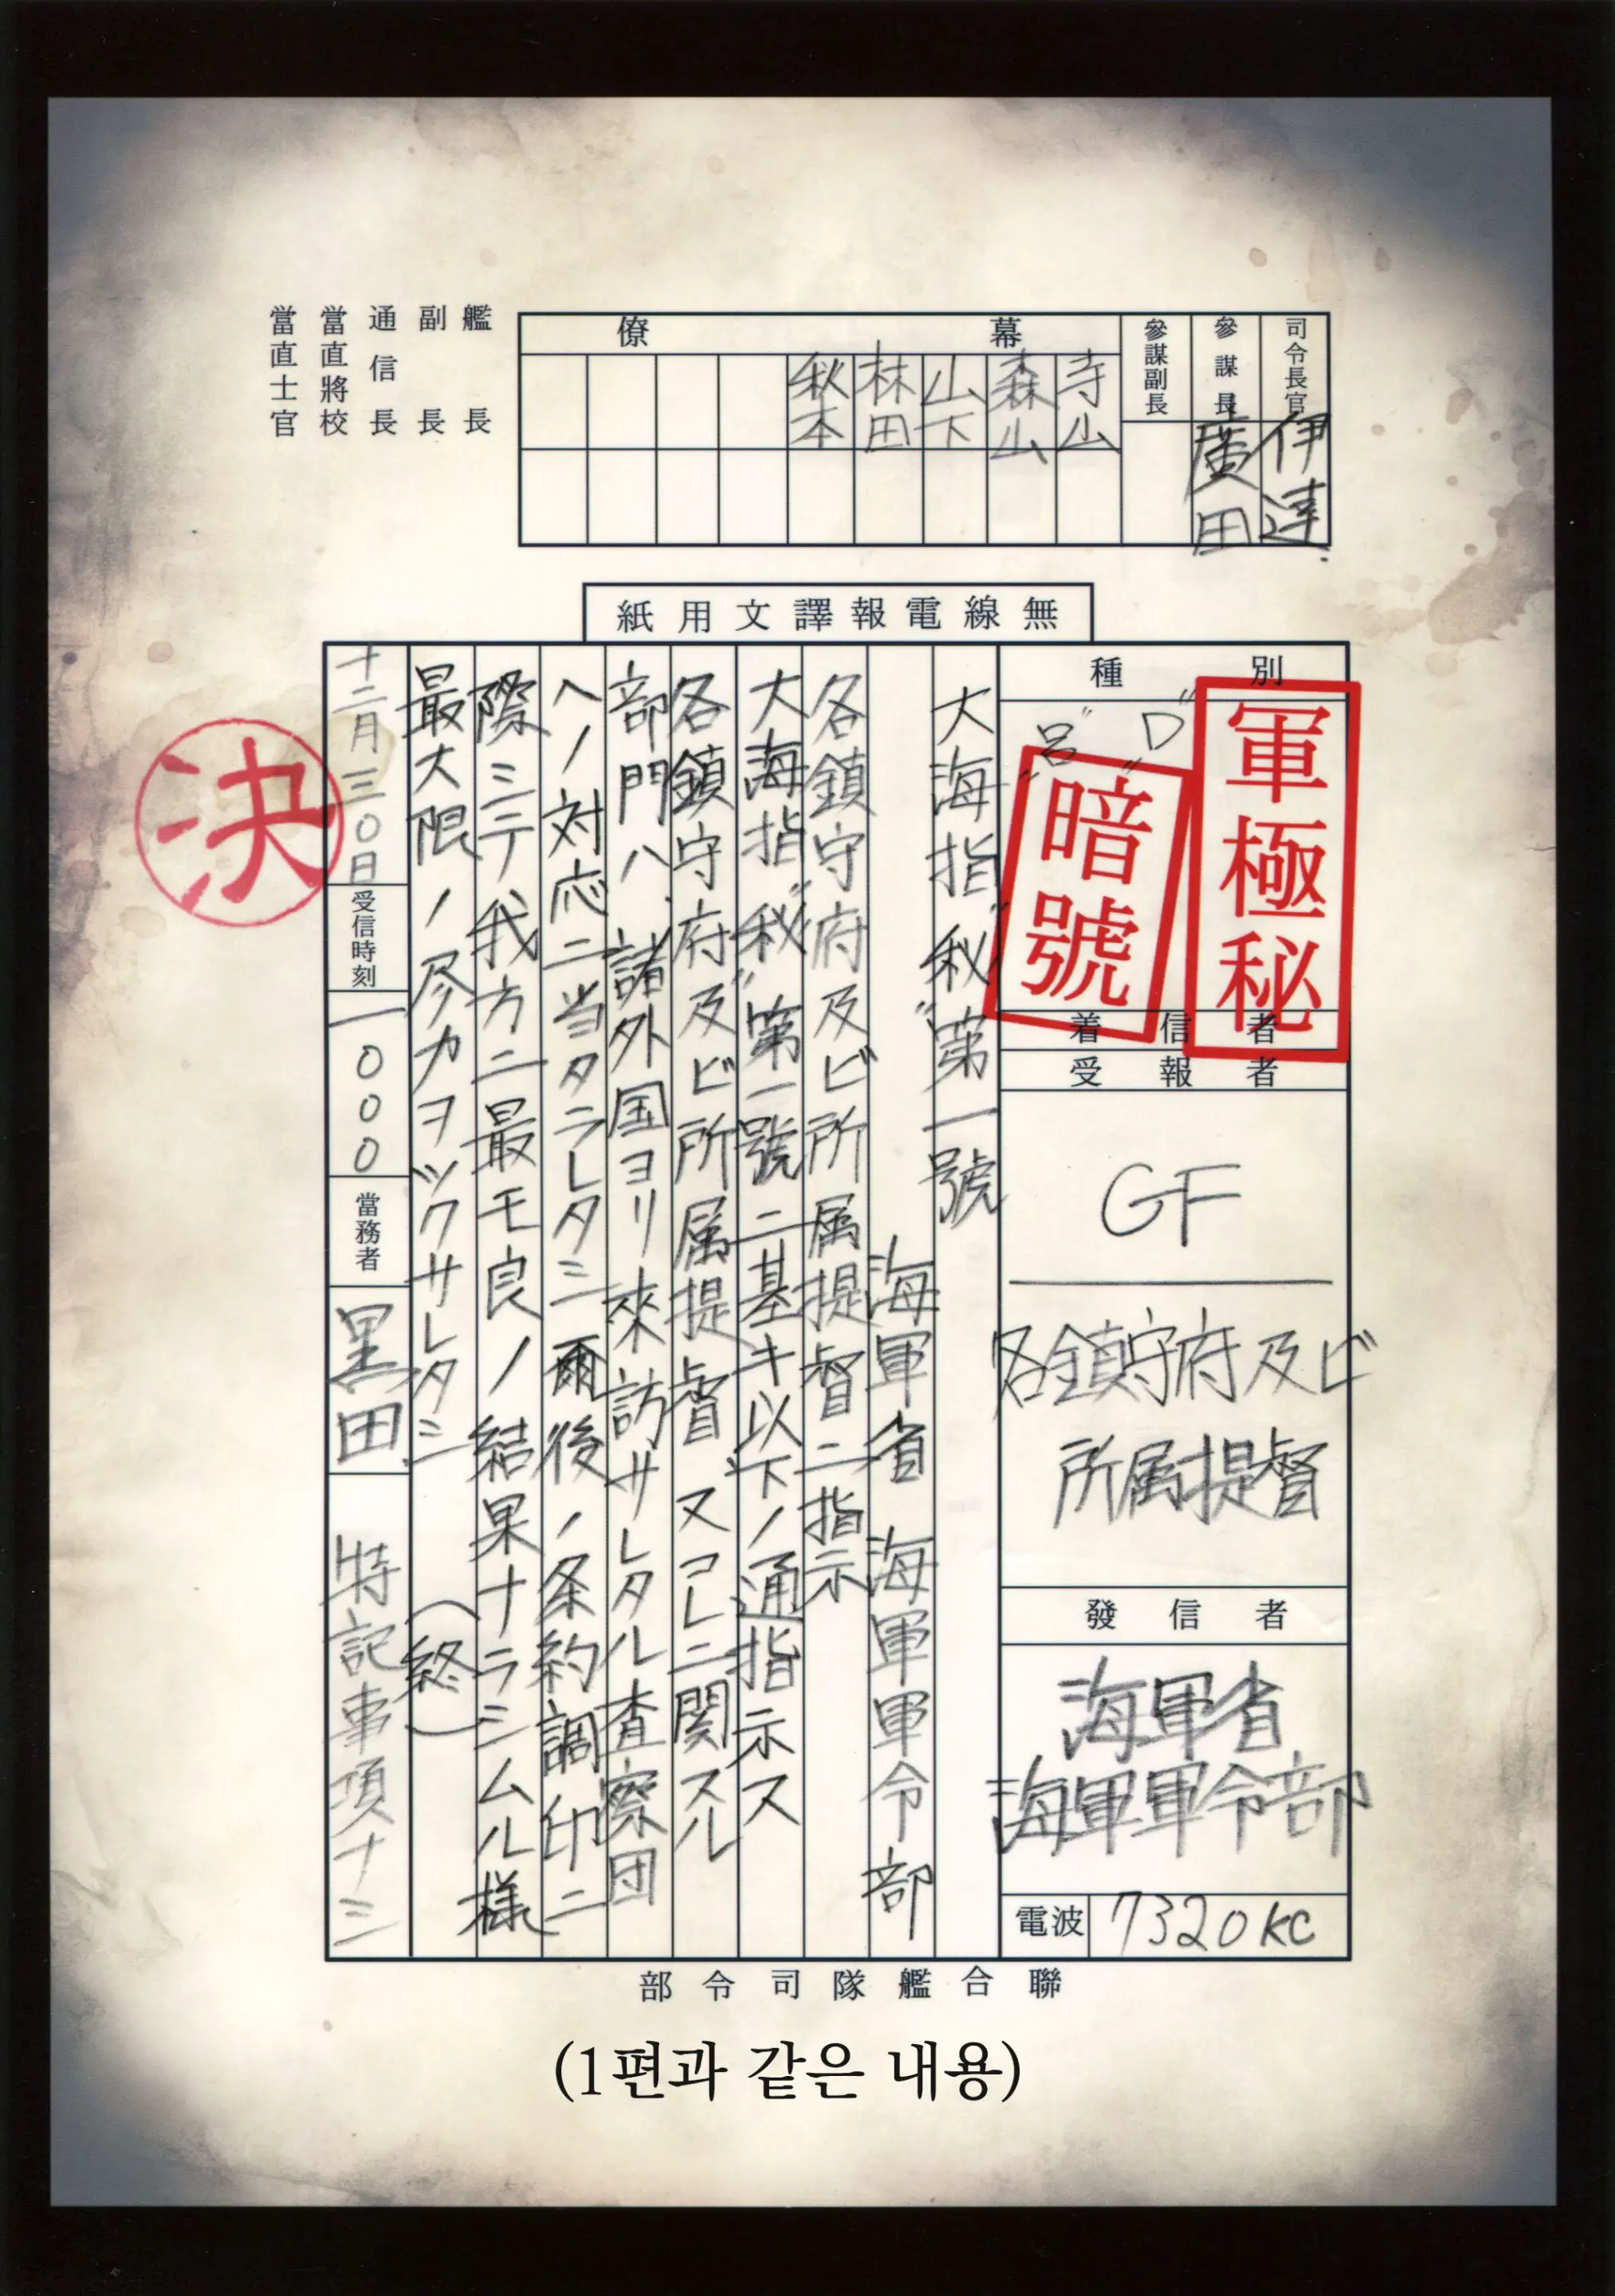 司令長官
伊達
參謀長
廣田
參謀副長
幕僚
寺山
森山
山下
林田
秋本
艦長
副長
通信長
當直將校
當直士官
無線電報譯文用紙
別種
"D"
"呂"
軍極秘
暗號
着信者
受報者
GF
各鎮守府及ビ
所属提督
發信者
海軍省
海軍軍令部
電波
7320KC
大海指"秘"第一號
海軍省 海軍軍令部
各鎮守府及ビ所属提督ニ指示
大海指"秘"第一號ニ基キ以下ノ通指示ス
各鎮守府及ビ所属提督 又コレニ関スル
部門ハ、諸外国ヨリ来訪サレタル査察団
ヘノ対応ニ当タラレタシ 爾後ノ条約調印ニ
際シテ我方ニ最モ良ノ結果ナラシムル様
最大限ノ尽力ヲツクサレタシ (終)
十二月三〇日
受信時刻
一〇〇〇
當務者
里田
特記事項ナシ
決
聯合艦隊司令部
(1편과 같은 내용)